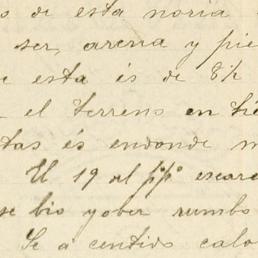 o de esta noria
ser, arena y pie
e esta és de 8½
el terreno en
tas és endonde m
El 19 del p.p.º escare
se bio yober rumbo
Se a centido calo